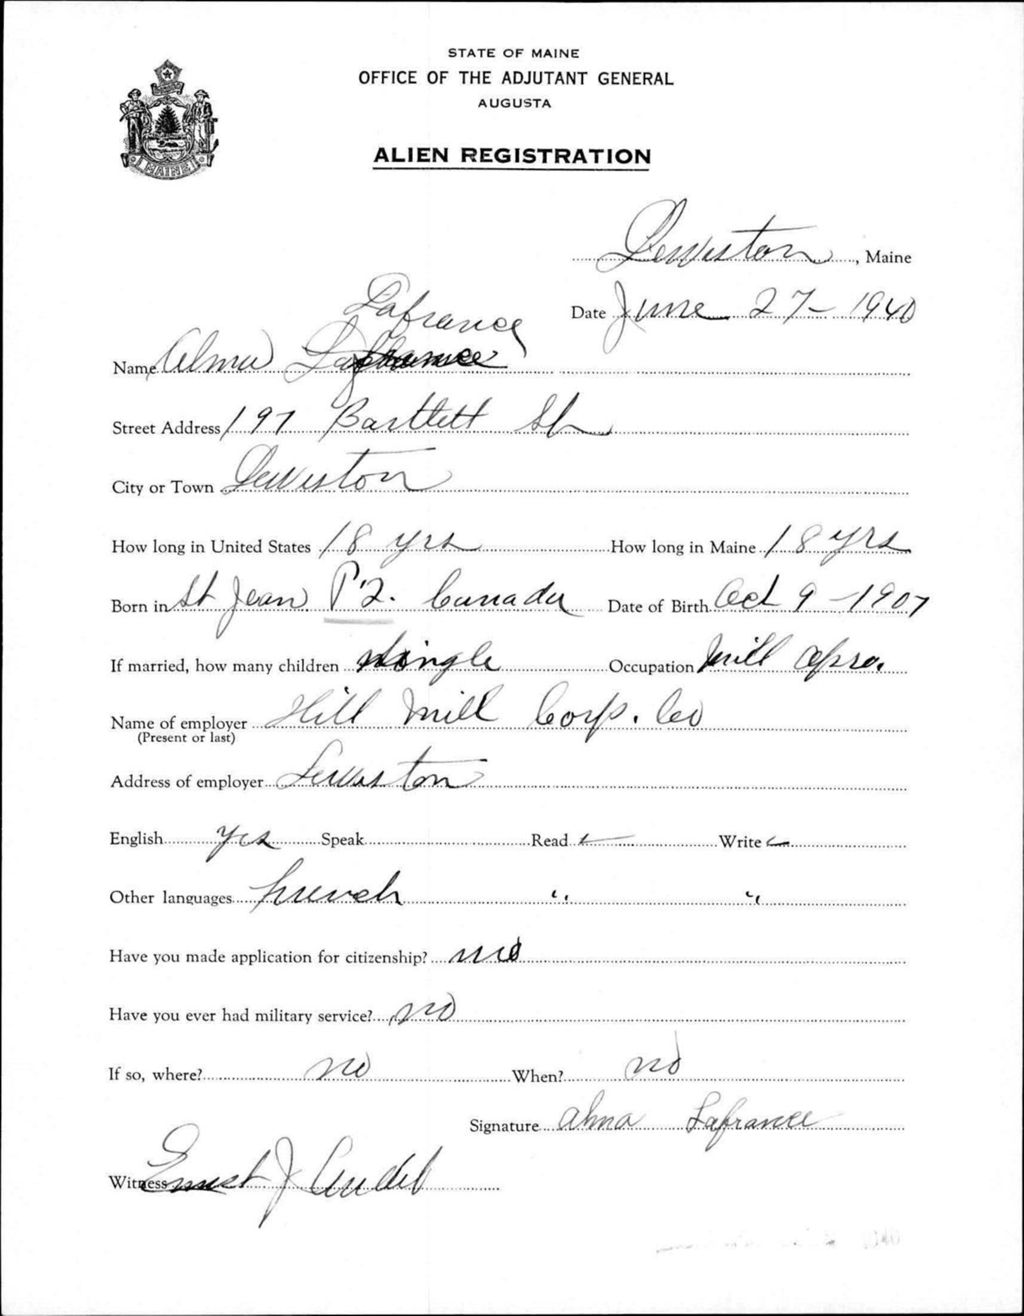 STATE OF MAINE
OFFICE OF THE ADJUTANT GENERAL
AUGUSTA
ALIEN REGISTRATION
MAINE
Lewiston, Maine
Date June 27-1940
Lafrance
Name Alma
Street Address 197 Bartlett St
City or Town Lewiston
How long in United States 18 yrs How long in Maine 18 yrs
Born in St Jean P'Q. Canada Date of Birth Oct 9-1907
If married, how many children single Occupation Mill opra.
Name of employer Hill Mill Corp. Co
(Present or last)
Address of employer Lewiston
English yes Speak Read Write
Other languages french " "
Have you made application for citizenship? no
Have you ever had military service? no
If so, where? no When? no
Signature Alma Lafrance
Witness Ernest J